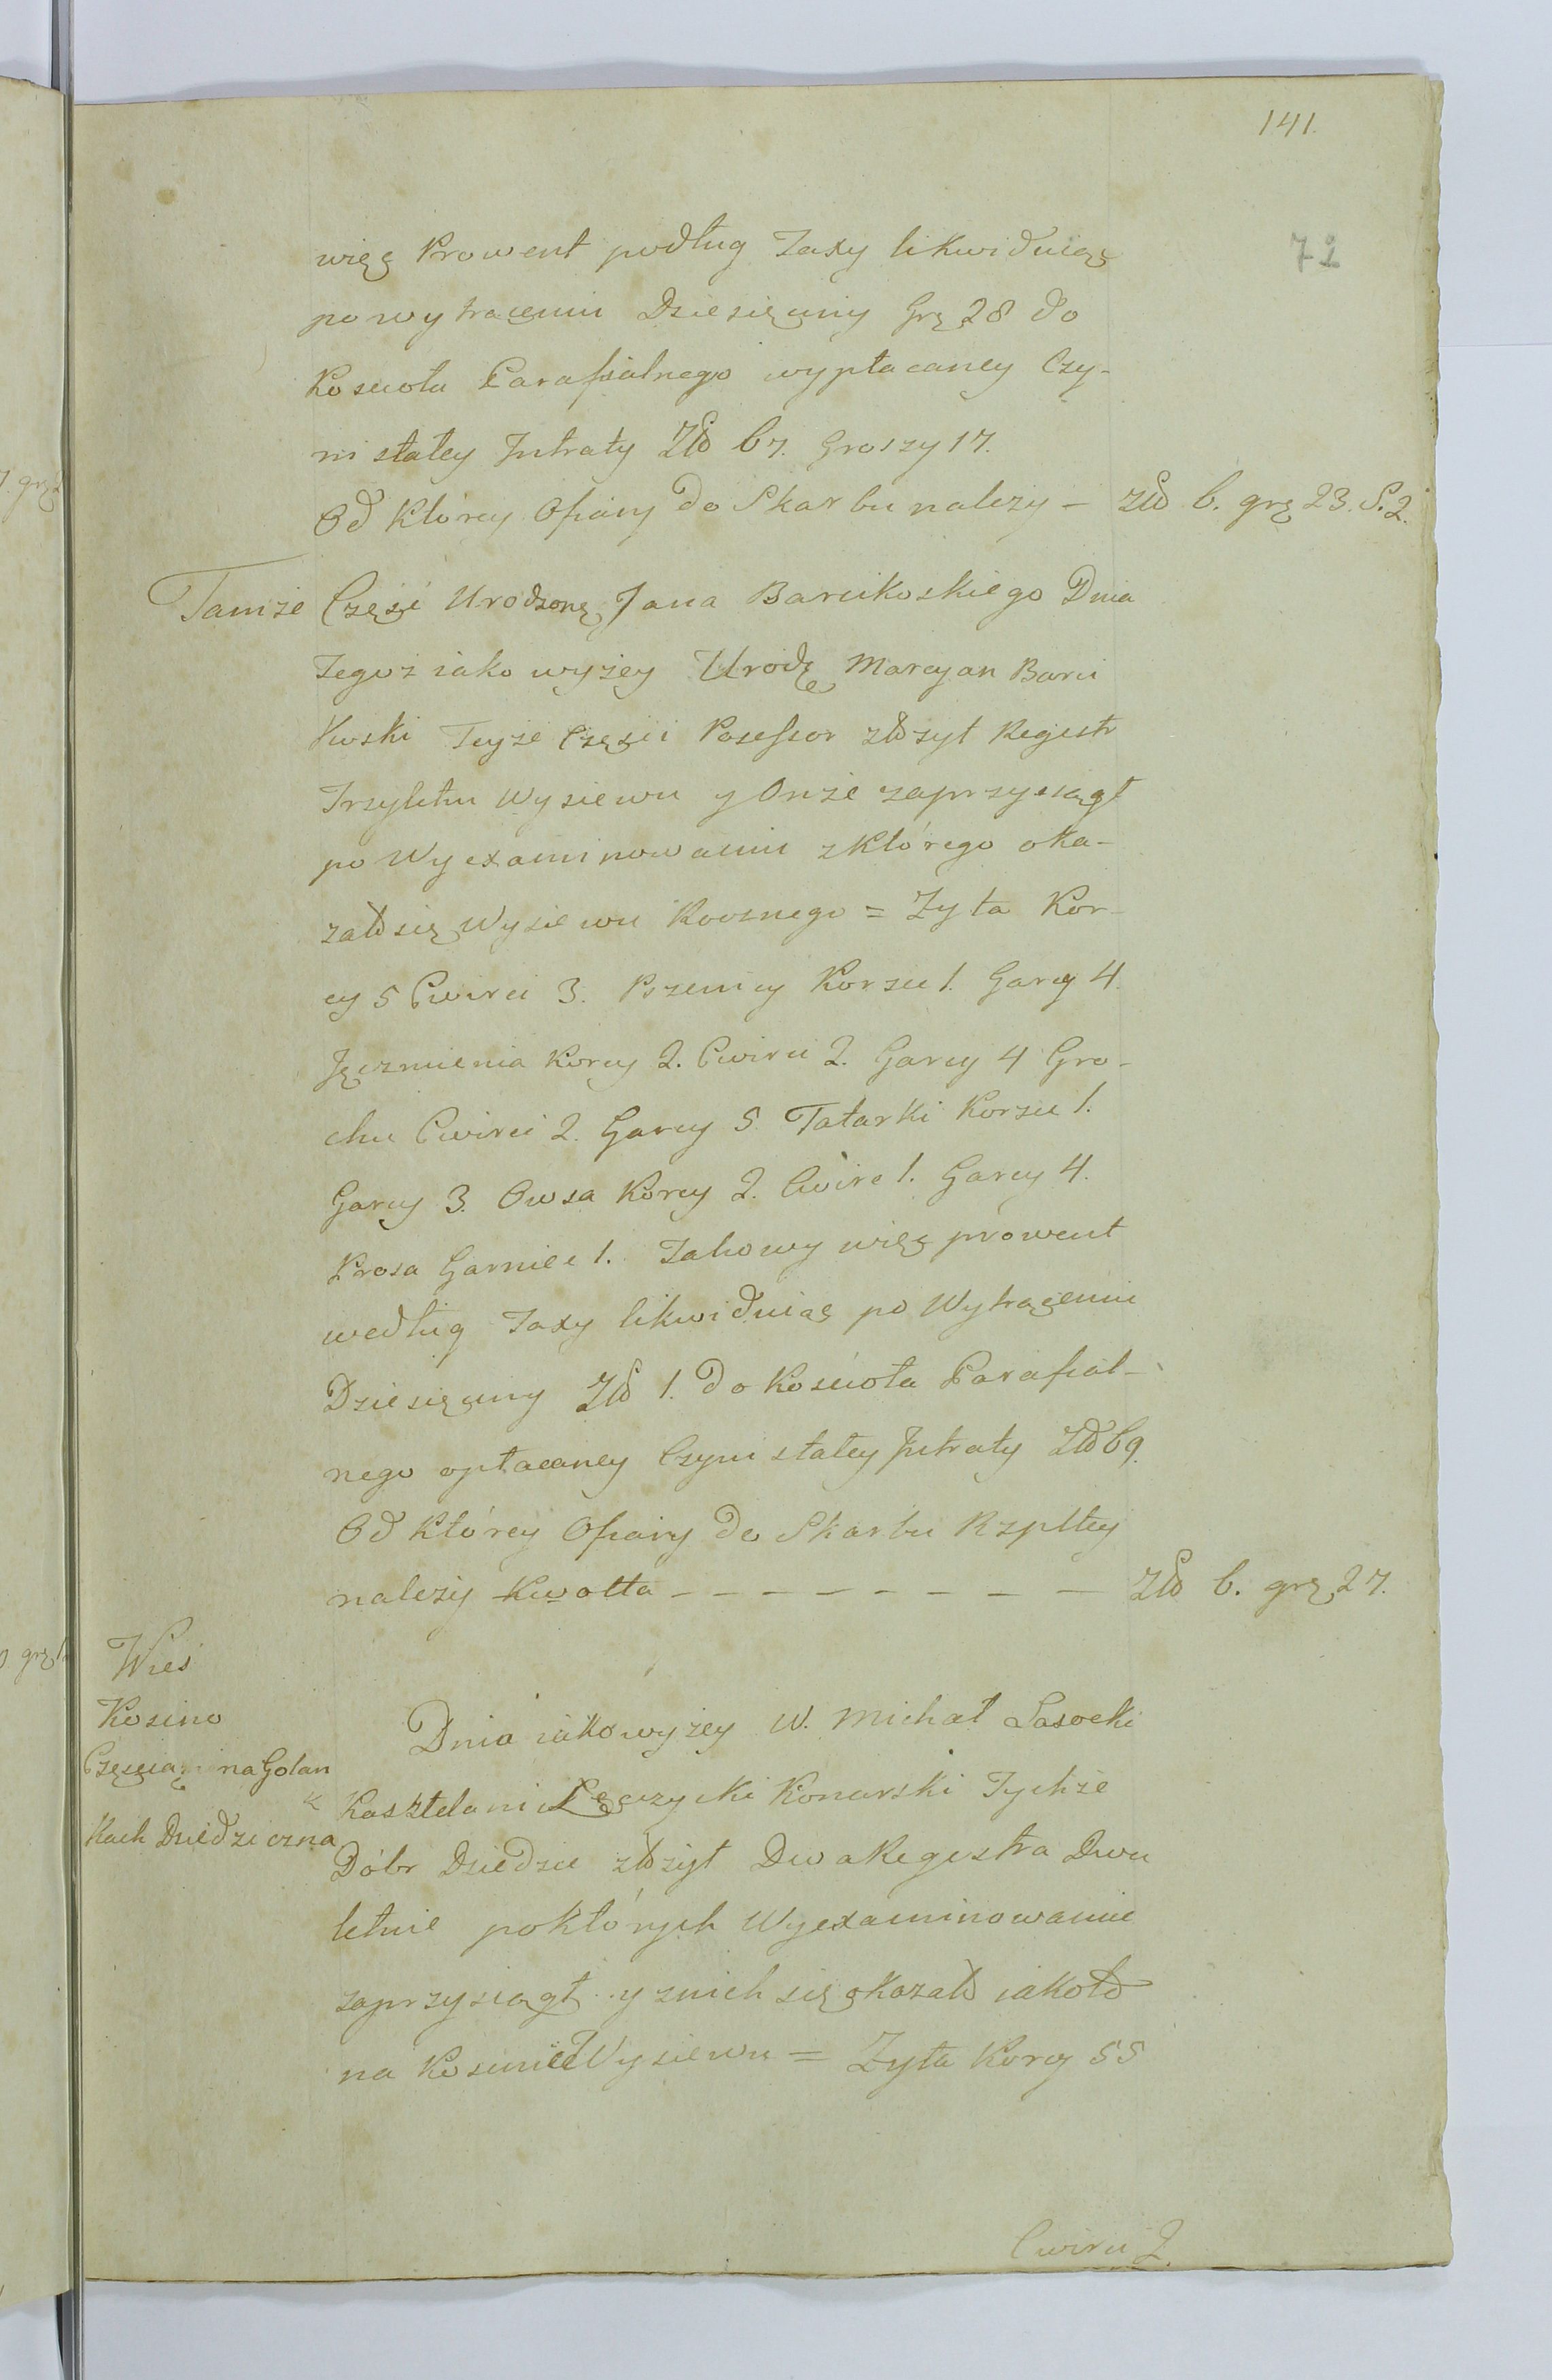 141.
72
więc Prowent podług Taxy likwiduiąc
po wytrąceniu Dziesięciny Grz 28 do
Kosciola Parafialnego wypłacaney Czy-
ni stałey Jntraty Złł 67. Groszy 17.
Od Którey Ofiary do Skarbu nalezy – Złł 6. grz 23. S. 2.
Tamze Częsci Urodzone Jana Barcikoskiego Dnia
Tegoz iako wyżey Urodz Marcyan Barci
kwski Teyże Częsci Possessor złożył Regestr
Trzyletni Wysiewu y Onże zaprzysiągł
po Wyexaminowaniu z Którego oka-
zało się Wysiewu Rocznego = Zyta Kor-
cy 5 Cwirci 3. Pszenicy Korzec 1. Garcy 4.
Jęczmienia Korcy 2. Cwirci 2. Garcy 4 Gro-
chu Cwirci 2. Garcy 5. Tatarki Korzec 1.
Garcy 3. Owsa Korcy 2. Cwirc 1. Garcy 4.
Prosa Garniec 1. Takowy więc prowent
według Taxy likwiduiąc po Wytrąceniu
Dziesięciny Złł 1. do Kosciola Parafial-
nego opłacaney Czyni stałey Jntraty Złł 69.
Od Którey Ofiary do Skarbu Rzpltey
nalezy Kwotta – – – – – – – – Złł 6. grz 27.
Wieś
Kosino
Częscią na Golan
kach Dziedziczna
Dnia iako wyżey W. Michał Lasocki
Kasztelanic Łęczycki Konarski Tychże
Dóbr Dziedzic złożył Dwa Regestra Dwu
letnie po których Wyexaminowanie
zaprzysiągł y z nich się okazało iako to
na Kosinie Wysiewu = Zyta Korcy 55
Cwirci 2.